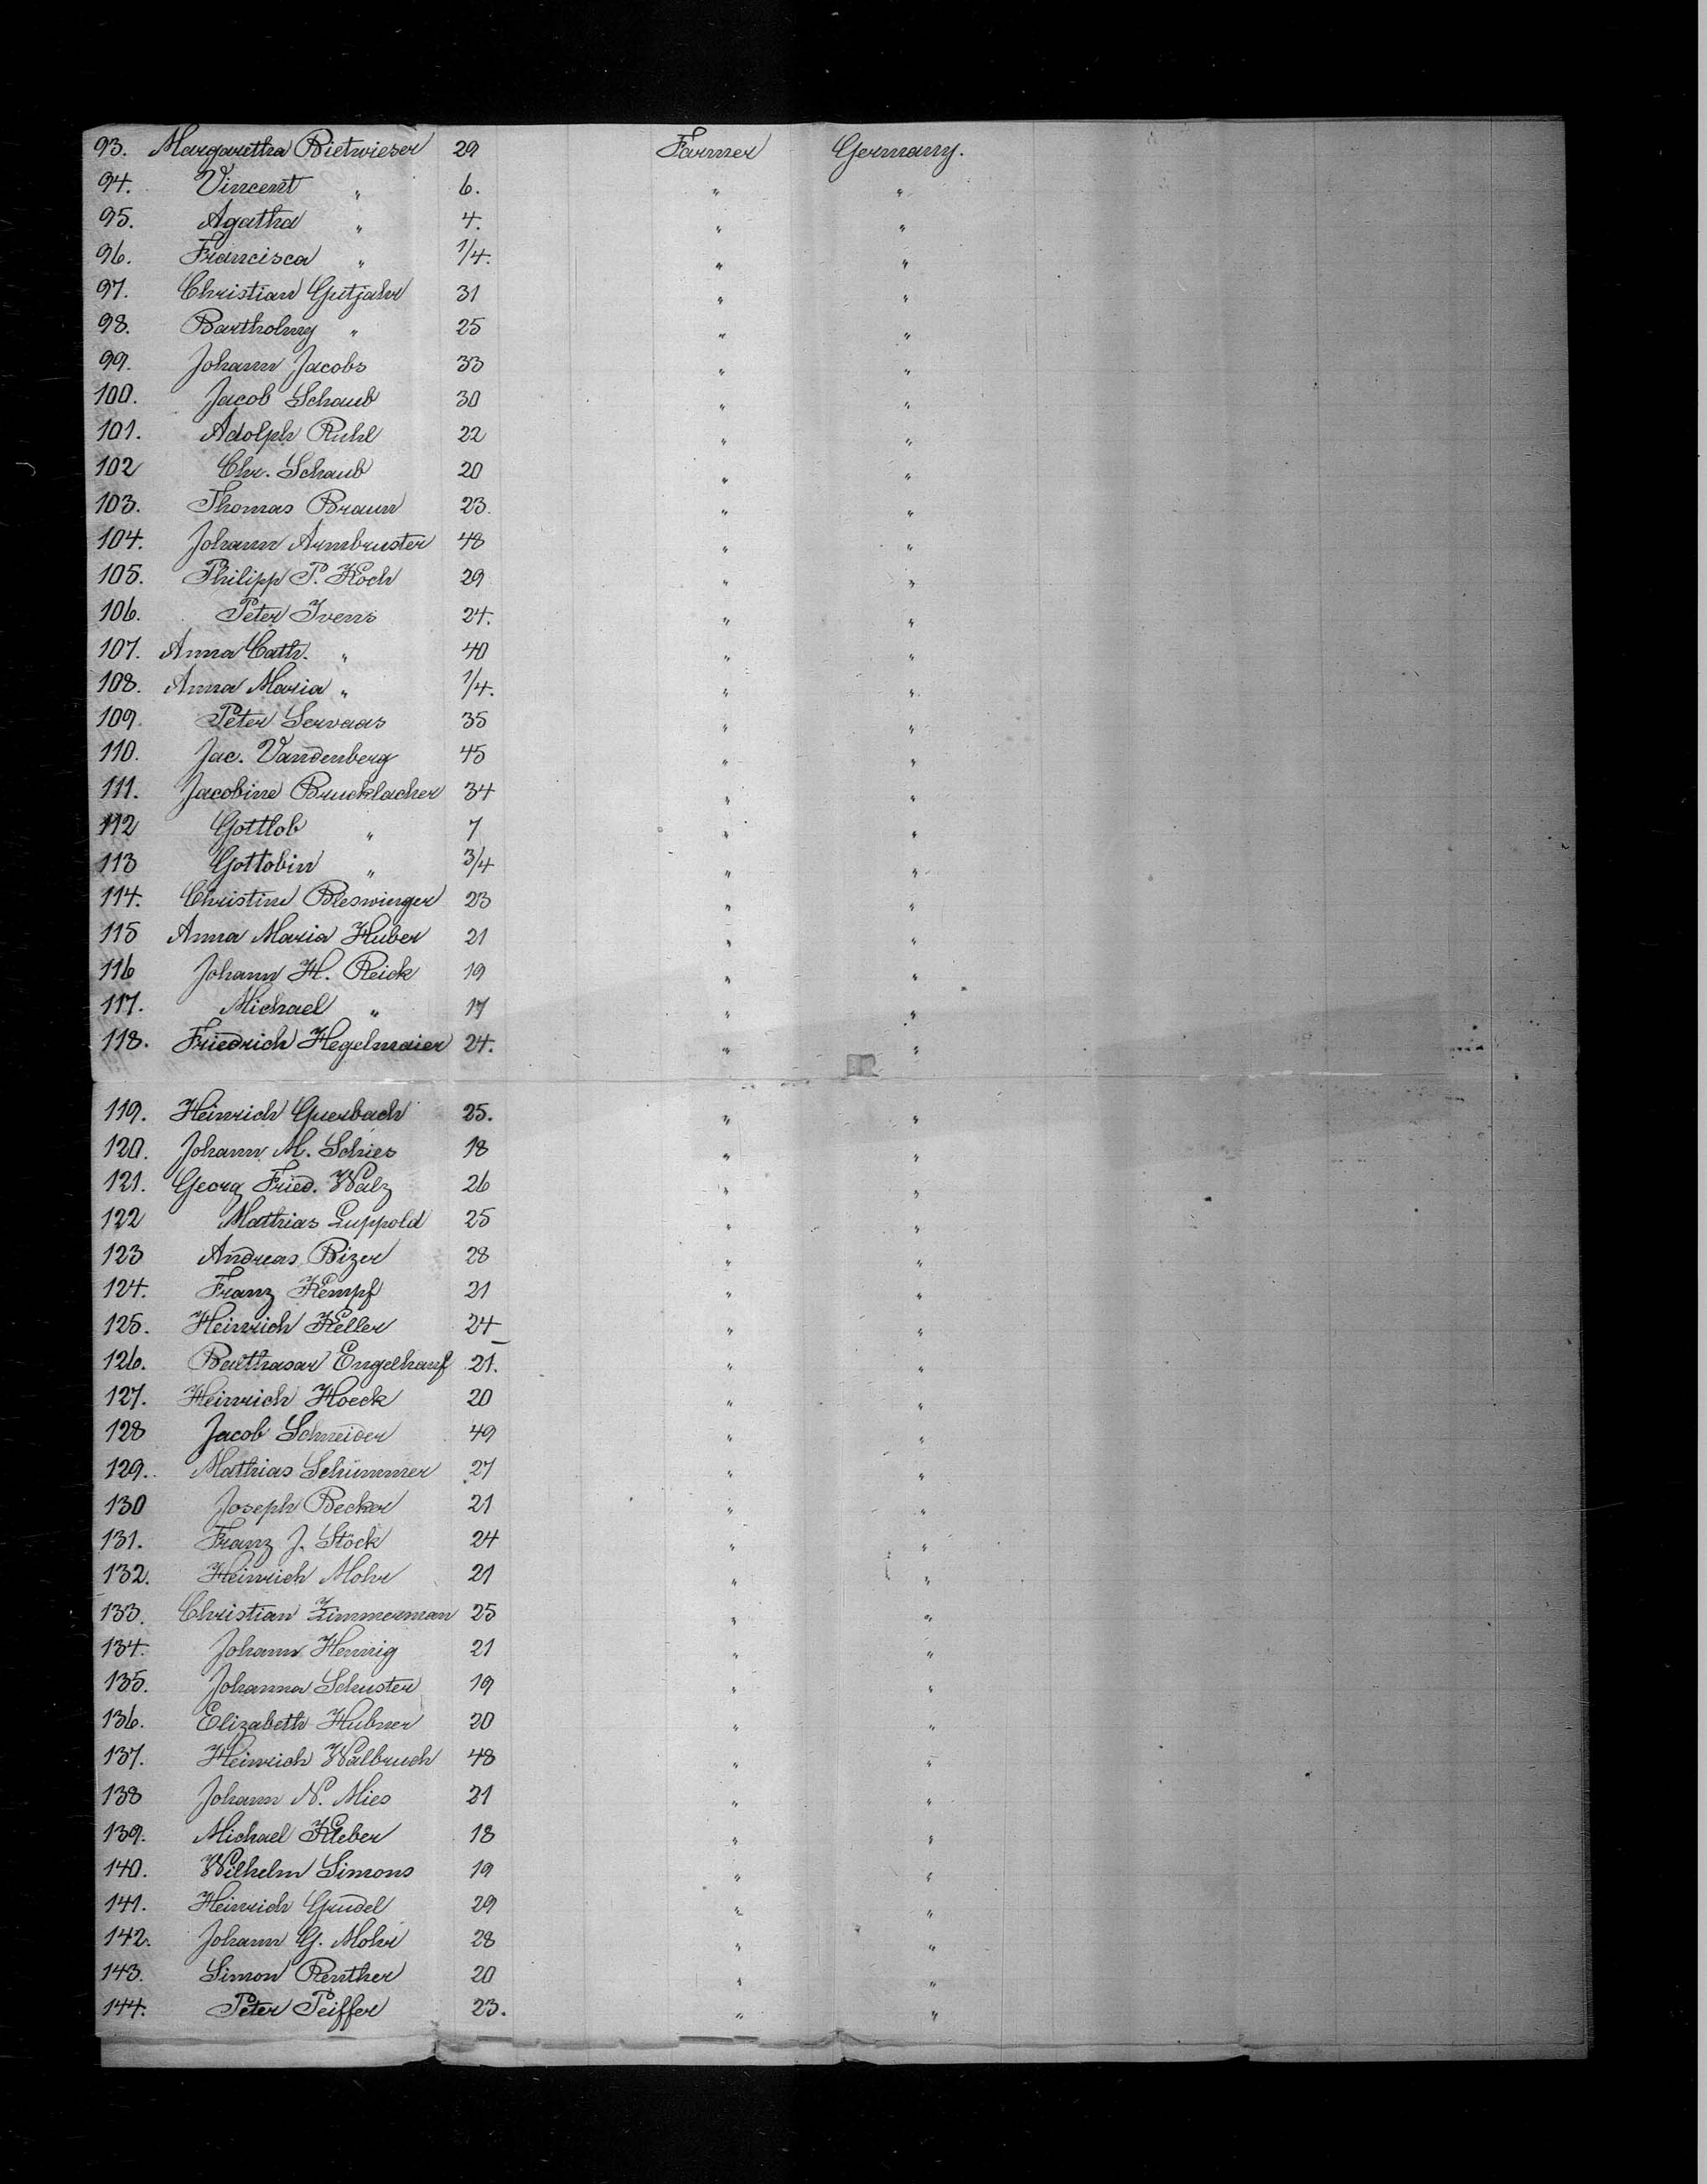 93. Margaretha Bietwieser 29 Farmer Germany.
94. Vincent " 6. " "
95. Agatha " 4. " "
96. Francisca " 1/4. " "
97. Christian Gutjahr 31 " "
98. Bartholmy " 25 " "
99. Johann Jacobs 33 " "
100. Jacob Schaub 30 " "
101. Adolph Ruhl 22 " "
102 Chr. Schaub 20 " "
103. Thomas Braun 23. " "
104. Johann Armbruster 48 " "
105. Philipp P. Koch 29 " "
106. Peter Ivens 24. " "
107. Anna Cath. " 40 " "
108. Anna Maria " 1/4. " "
109. Peter Servaas 35 " "
110. Jac. Vandenberg 45 " "
111. Jacobine Brucklacher 34 " "
112 Gottlob " 7 " "
113 Gottobin " 3/4 " "
114. Christine Bleswinger 23 " "
115 Anna Maria Huber 21 " "
116 Johann H. Reick 19 " "
117. Michael " 17 " "
118. Friedrich Hegelmaier 24. " "
119. Heinrich Guerbach 25. " "
120. Johann M. Schies 18 " "
121. Georg Fried. Walz 26 " "
122 Mathias Luppold 25 " "
123 Andreas Bizer 28 " "
124. Franz Kempf 21 " "
125. Heinrich Keller 24 " "
126. Balthasar Engelhauf 21. " "
127. Heinrich Hoeck 20 " "
128 Jacob Schneider 49 " "
129. Mathias Schummer 27 " "
130 Joseph Becker 21 " "
131. Franz J. Stock 24 " "
132. Heinrich Mohr 21 " "
133. Christian Zimmerman 25 " "
134. Johann Hennig 21 " "
135. Johanna Schuster 19 " "
136. Elizabeth Hubner 20 " "
137. Heinrich Walbruch 48 " "
138 Johann N. Mies 21 " "
139. Michael Kleber 18 " "
140. Wilhelm Simons 19 " "
141. Heinrich Grudel 29 " "
142. Johann G. Mohr 28 " "
143. Simon Renther 20 " "
144. Peter Peiffer 23. " "